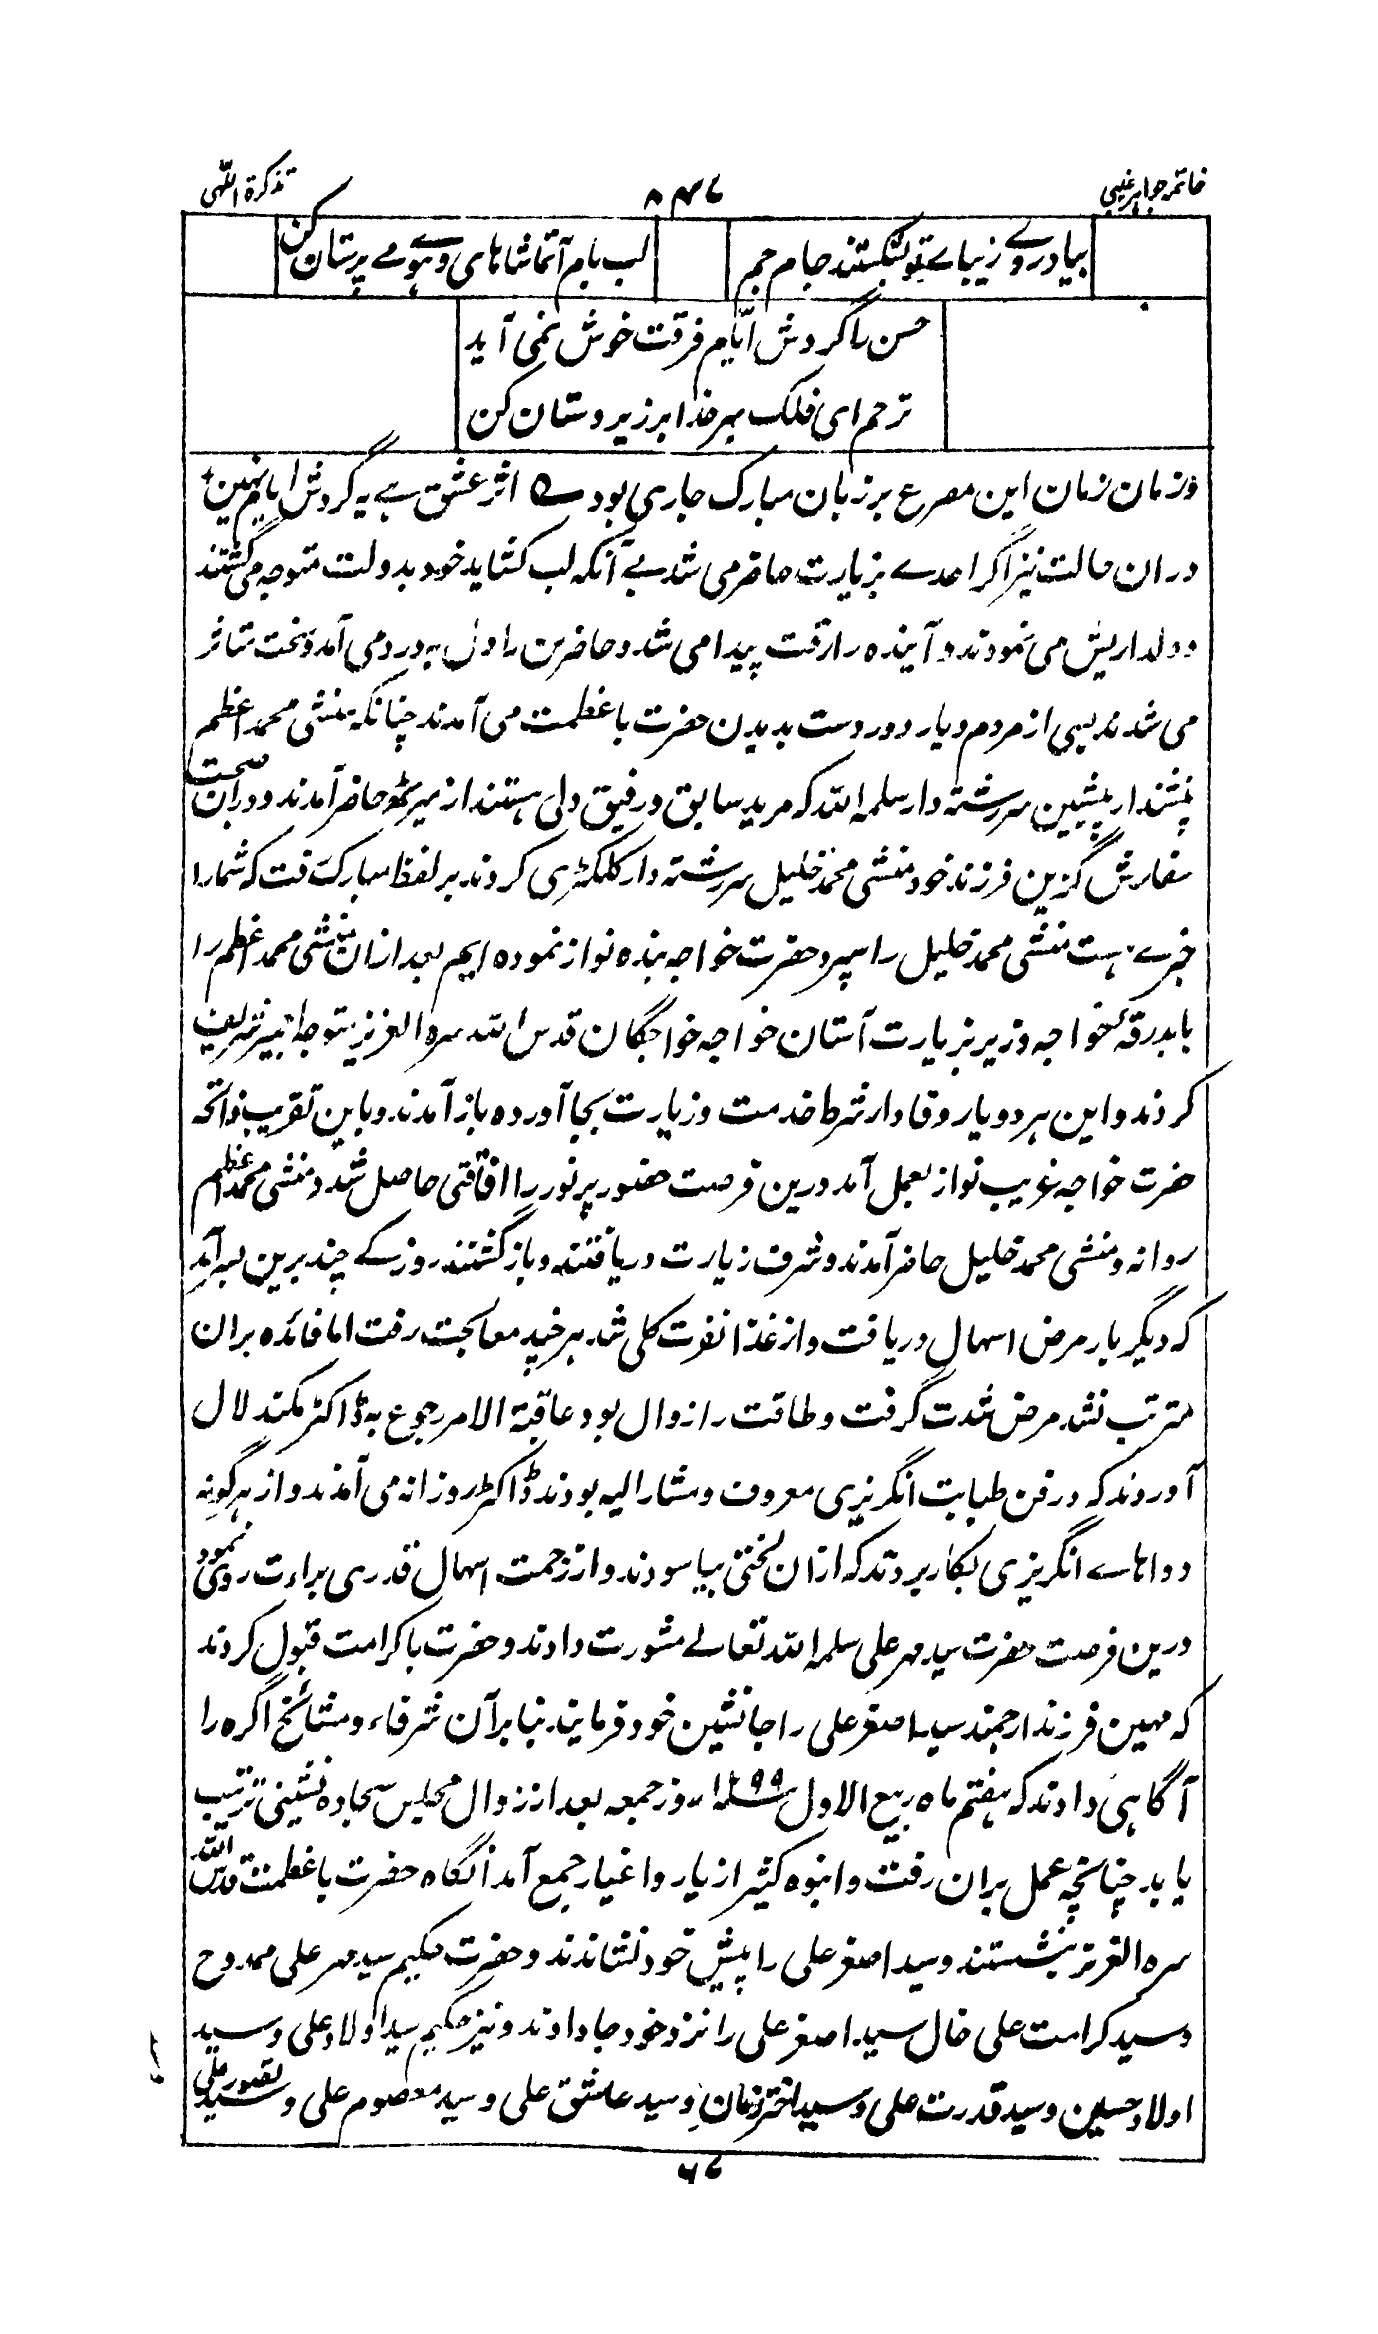 خاتمہ جواہر غیبی
۷۴۸
تذکرۃ اللّٰہی
بیاد روے زیباے تو بشکستند جام جم
لب بام آ تماشا ہای و ہوے می پرستان کن
حسن را گردش ایّام فرقت خوش نمی آید
ترحم ای فلک بہر خدا بر زیردستان کن
وزمان زمان این مصرع بر زبان مبارک جاری بود ے اثر عشق ہے یہ گردش ایام نہین
دران حالت نیز اگر احدے بزیارت حاضر می شد بے آنکہ لب کشاید خود بدولت متوجہ می گشتند
و دلداریش می نمودند و آیندہ را رقت پیدا می شد و حاضرین را دل بہ درد می آمد و سخت متاثر
می شدند بسی از مردم دیار دوردست بدیدن حضرت با عظمت می آمدند چنانکہ منشی محمد اعظم
پنشندار پیشین سررشتہ دار سلمہ اللہ کہ مرید سابق و رفیق دلی ہستند از میرٹھ حاضر آمدند و دران صحبت
سفارش گزین فرزند خود منشی محمد خلیل سررشتہ دار کلکٹری کردند بر لفظ مبارک رفت کہ شما را
خبرے ہست منشی محمد خلیل را سپرد حضرت خواجہ بندہ نواز نمودہ ایم بعد ازان منشی محمد اعظم را
با بدرقۂ خواجہ وزیر بزیارت آستان خواجہ خواجگان قدس اللہ سرہ العزیز متوجہ اجمیر شریف
کردند و این ہر دو یار وفادار شرط خدمت و زیارت بجا آوردہ باز آمدند و باین تقریب فاتحہ
حضرت خواجہ غریب نواز بعمل آمد درین فرصت حضور پرنور را افاقتی حاصل شد و منشی محمد اعظم
روانہ و منشی محمد خلیل حاضر آمدند و شرف زیارت دریافتند و باز گشتند روزکے چند برین بسر آمد
کہ دیگر بار مرض اسہال دریافت و از غذا نفرت کلی شد ہر چند معالجت رفت اما فائدہ بران
مترتب نشد مرض شدت گرفت و طاقت را زوال بود عاقبۃ الامر رجوع بہ ڈاکٹر مکند لال
آوردند کہ در فن طبابت انگریزی معروف و مشار الیہ بودند ڈاکٹر روزانہ می آمدند و از ہر گونہ
دواہاے انگریزی بکار بردند کہ ازان لختی بیاسودند و از زحمت اسہال قدری براءت روی نمود
درین فرصت حضرت سید مہر علی سلمہ اللہ تعالے مشورت دادند و حضرت با کرامت قبول کردند
کہ مہین فرزند ارجمند سید اصغر علی را جانشین خود فرمایند بنا بر آن شرفاء و مشائخ اگرہ را
آگاہی دادند کہ ہفتم ماہ ربیع الاول ۱۲۹۹ روز جمعہ بعد از زوال مجلس سجادہ نشینی ترتیب
یابد چنانچہ عمل بران رفت و انبوہ کثیر از یار و اغیار جمع آمد آنگاہ حضرت با عظمت قدس اللہ
سرہ العزیز بنشستند و سید اصغر علی را پیش خود نشاندند و حضرت حکیم سید مہر علی ممدوح
و سید کرامت علی خال سید اصغر علی را نزد خود جا دادند و نیز حکیم سید اولاد علی و سید
اولاد حسین و سید قدرت علی و سید اختر زمان و سید عاشق علی و سید معصوم علی و سید تصور علی
۷۶